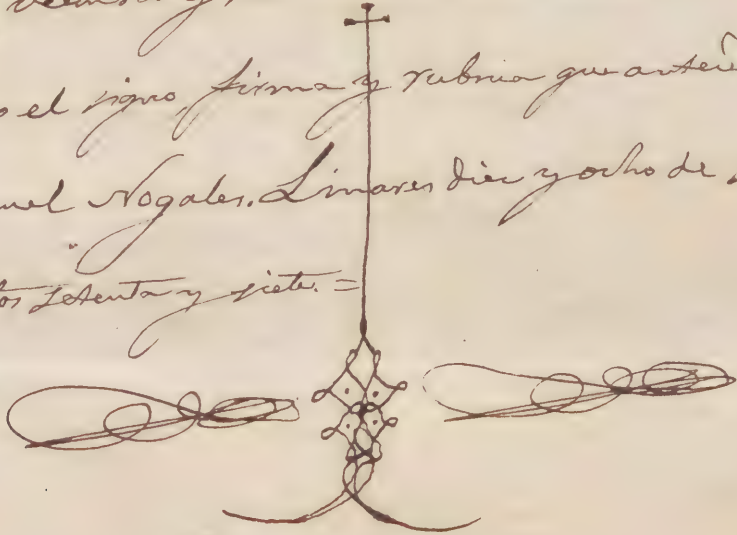 o el signo, firma y rubrica que antece
uel Nogales. Linares diez y ocho de
tos setenta y siete. =